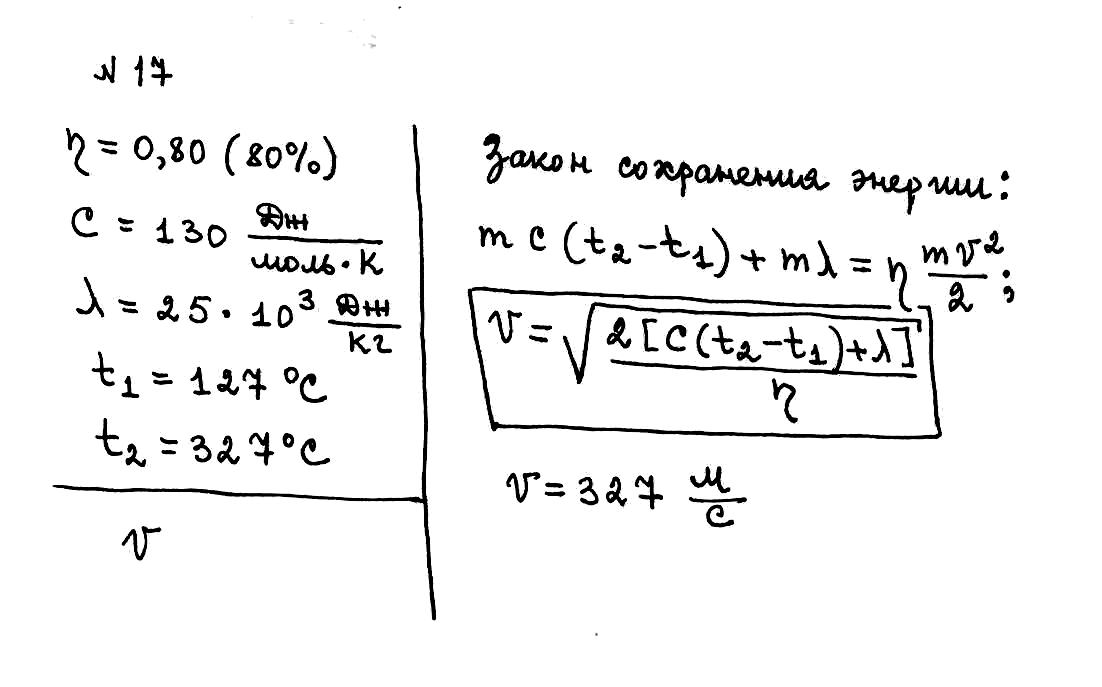 № 17
η = 0,80 (80%)
c = 130 Дж/моль·К
λ = 25·10³ Дж/кг
t₁ = 127 °C
t₂ = 327 °C
v
Закон сохранения энергии:
mc(t₂-t₁)+mλ = η mv²/2;
v = √(2[c(t₂-t₁)+λ]/η)
v = 327 м/с